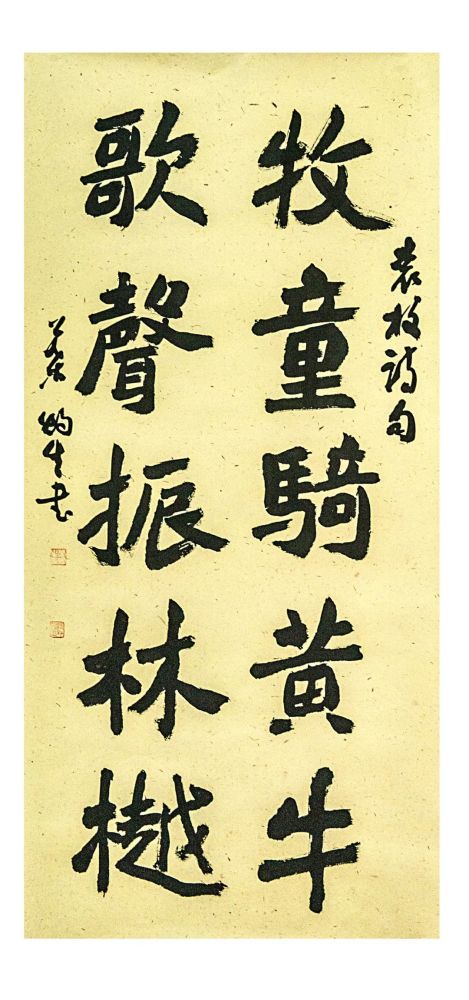 袁枚詩句
牧童騎黃牛
歌聲振林樾
書